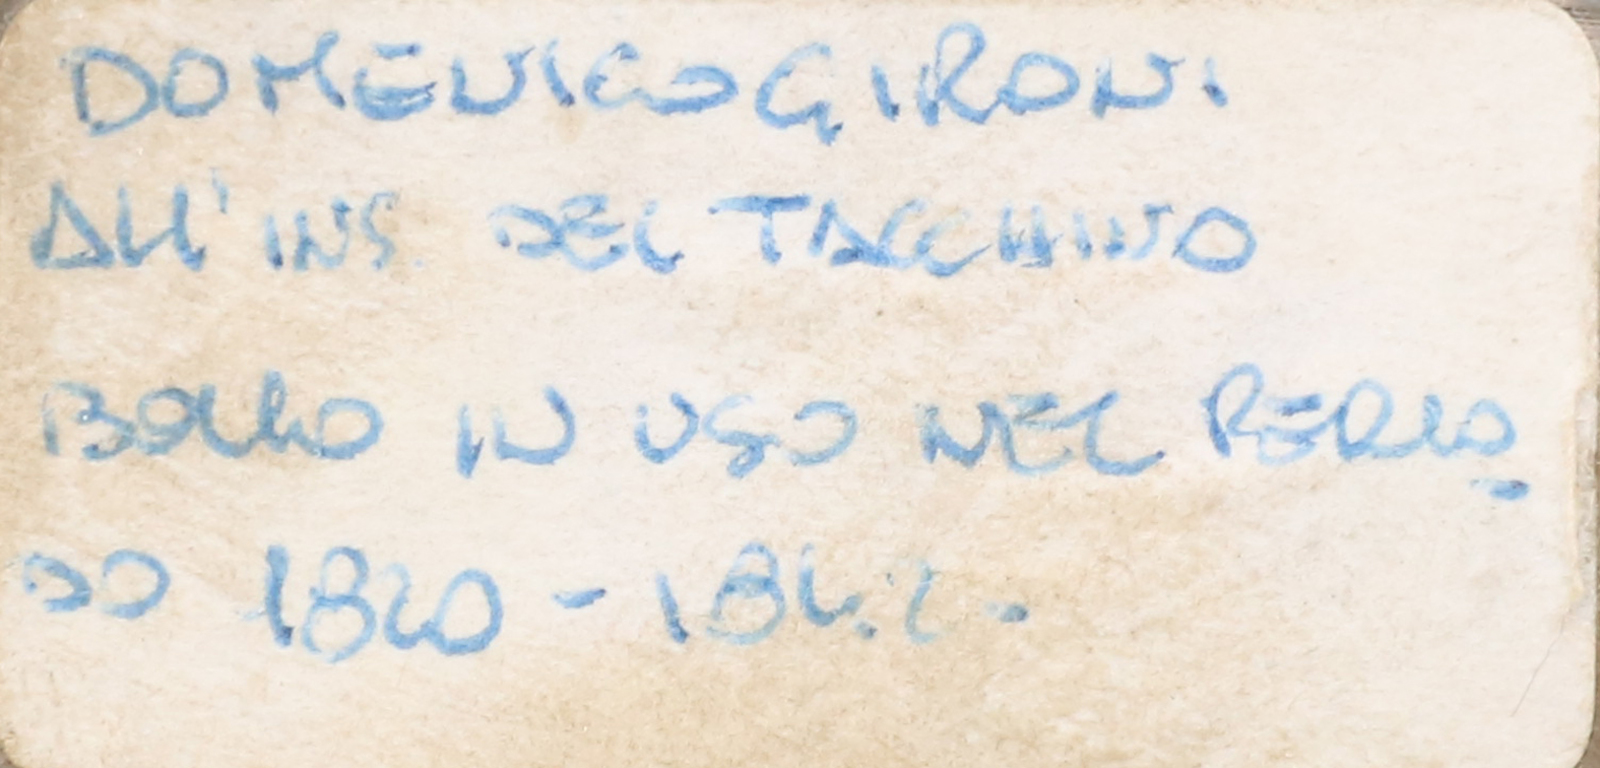 DOMENICO GIRONI
ALL' INS. DEL TACCHINO
BOLLO IN USO NEL PERIO
DO 1820 - 1842 -